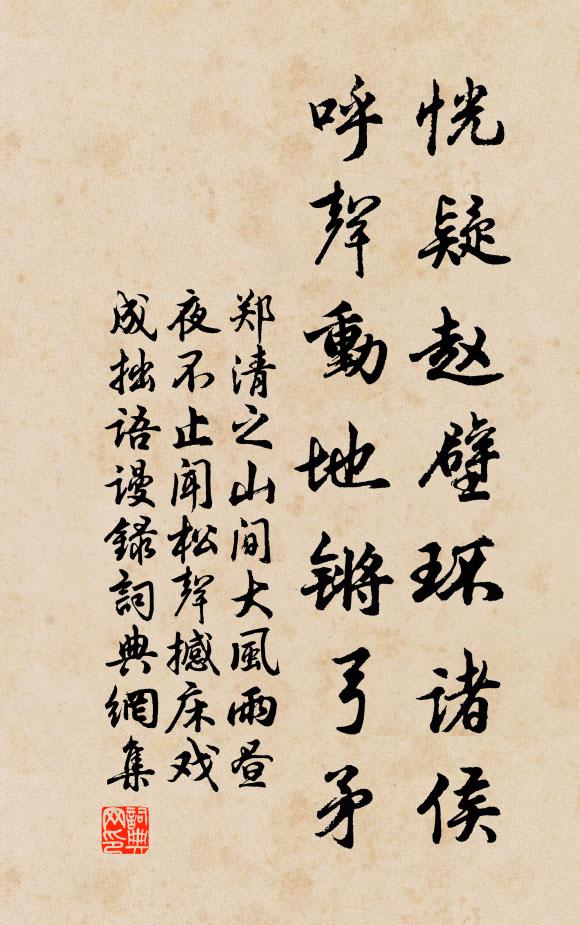 恍疑赵壁环诸侯
呼聲動地锵弓矛
郑清之山间大風雨昼
夜不止闻松聲撼床戏
成拙语谩録詞典網集
詞典网印